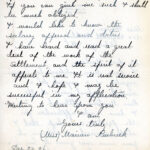 If you can give me such I shall
be much obliged
I would like to know the
salary offered and duties.
I have heard and read a great
deal of the work of the
Settlement and the spirit of it
appeals to me. It is real service
and I hope I may be
successful in my application.
Waiting to hear from you
I am
Yours truly
(Miss) Marian